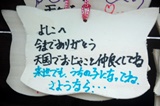 よしこへ
今までありがとう
天国でおじぃと仲良くしてね
来世でも、うちの子になってね。
さようなら・・・